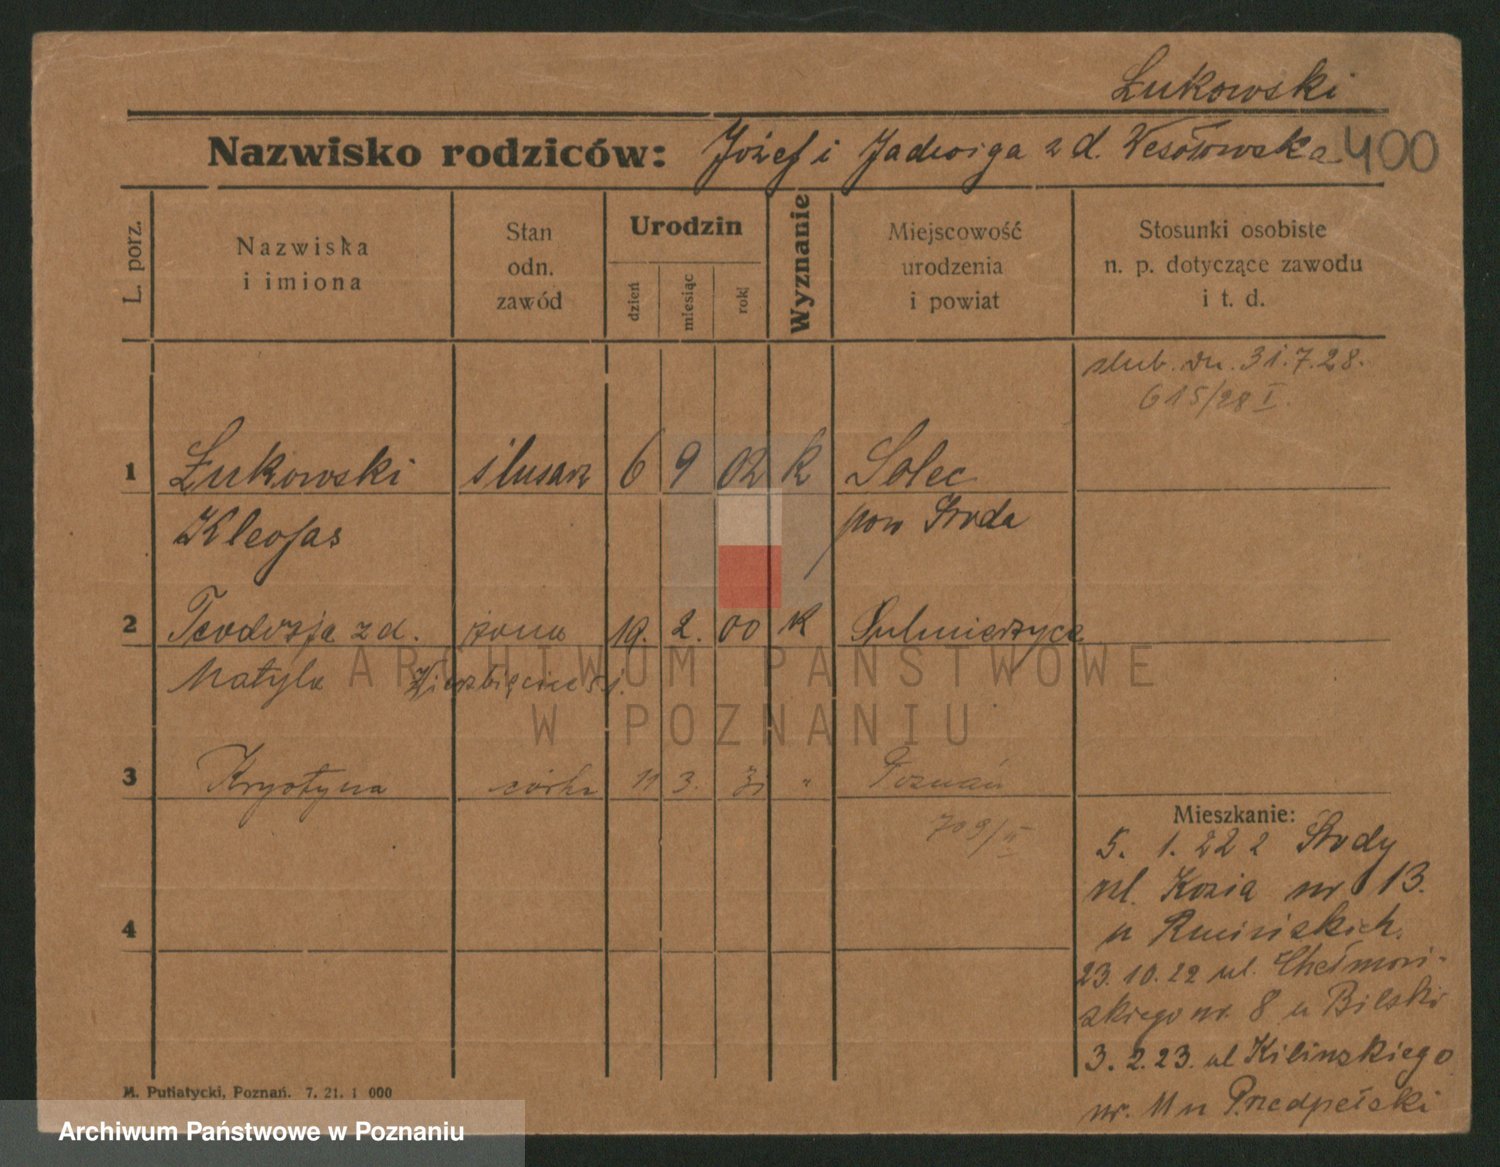 Łukowski
Nazwisko rodziców: Józef i Jadwiga z d. Wesołowska 400
L. porz.
Nazwiska
i imiona
Stan
odn.
zawód
Urodzin
dzień
miesiąc
rok
Wyznanie
Miejscowość
urodzenia
i powiat
Stosunki osobiste
n. p. dotyczące zawodu
i t. d.
ślub. dn. 31.7.28.
615/28 I.
1 Łukowski ślusarz 6 9 02 k Solec
Kleofas pow Środa
2 Teodozja z d. żona 19. 2. 00 k Sulmierzyce
Matyla
3 Krystyna córka 11 3. 31 " Poznań
709/II
Mieszkanie:
5. 1. 22 z Środy
ul. Kozia nr 13.
u
23.10.22 ul. Chełmoń-
skiego nr. 8 u Bilski
3.2.23. ul Kilińskiego
nr. 11 u Przedpełski
4
M. Putiatycki, Poznań. 7. 21. 1 000
ARCHIWUM PAŃSTWOWE
W POZNANIU
Archiwum Państwowe w Poznaniu